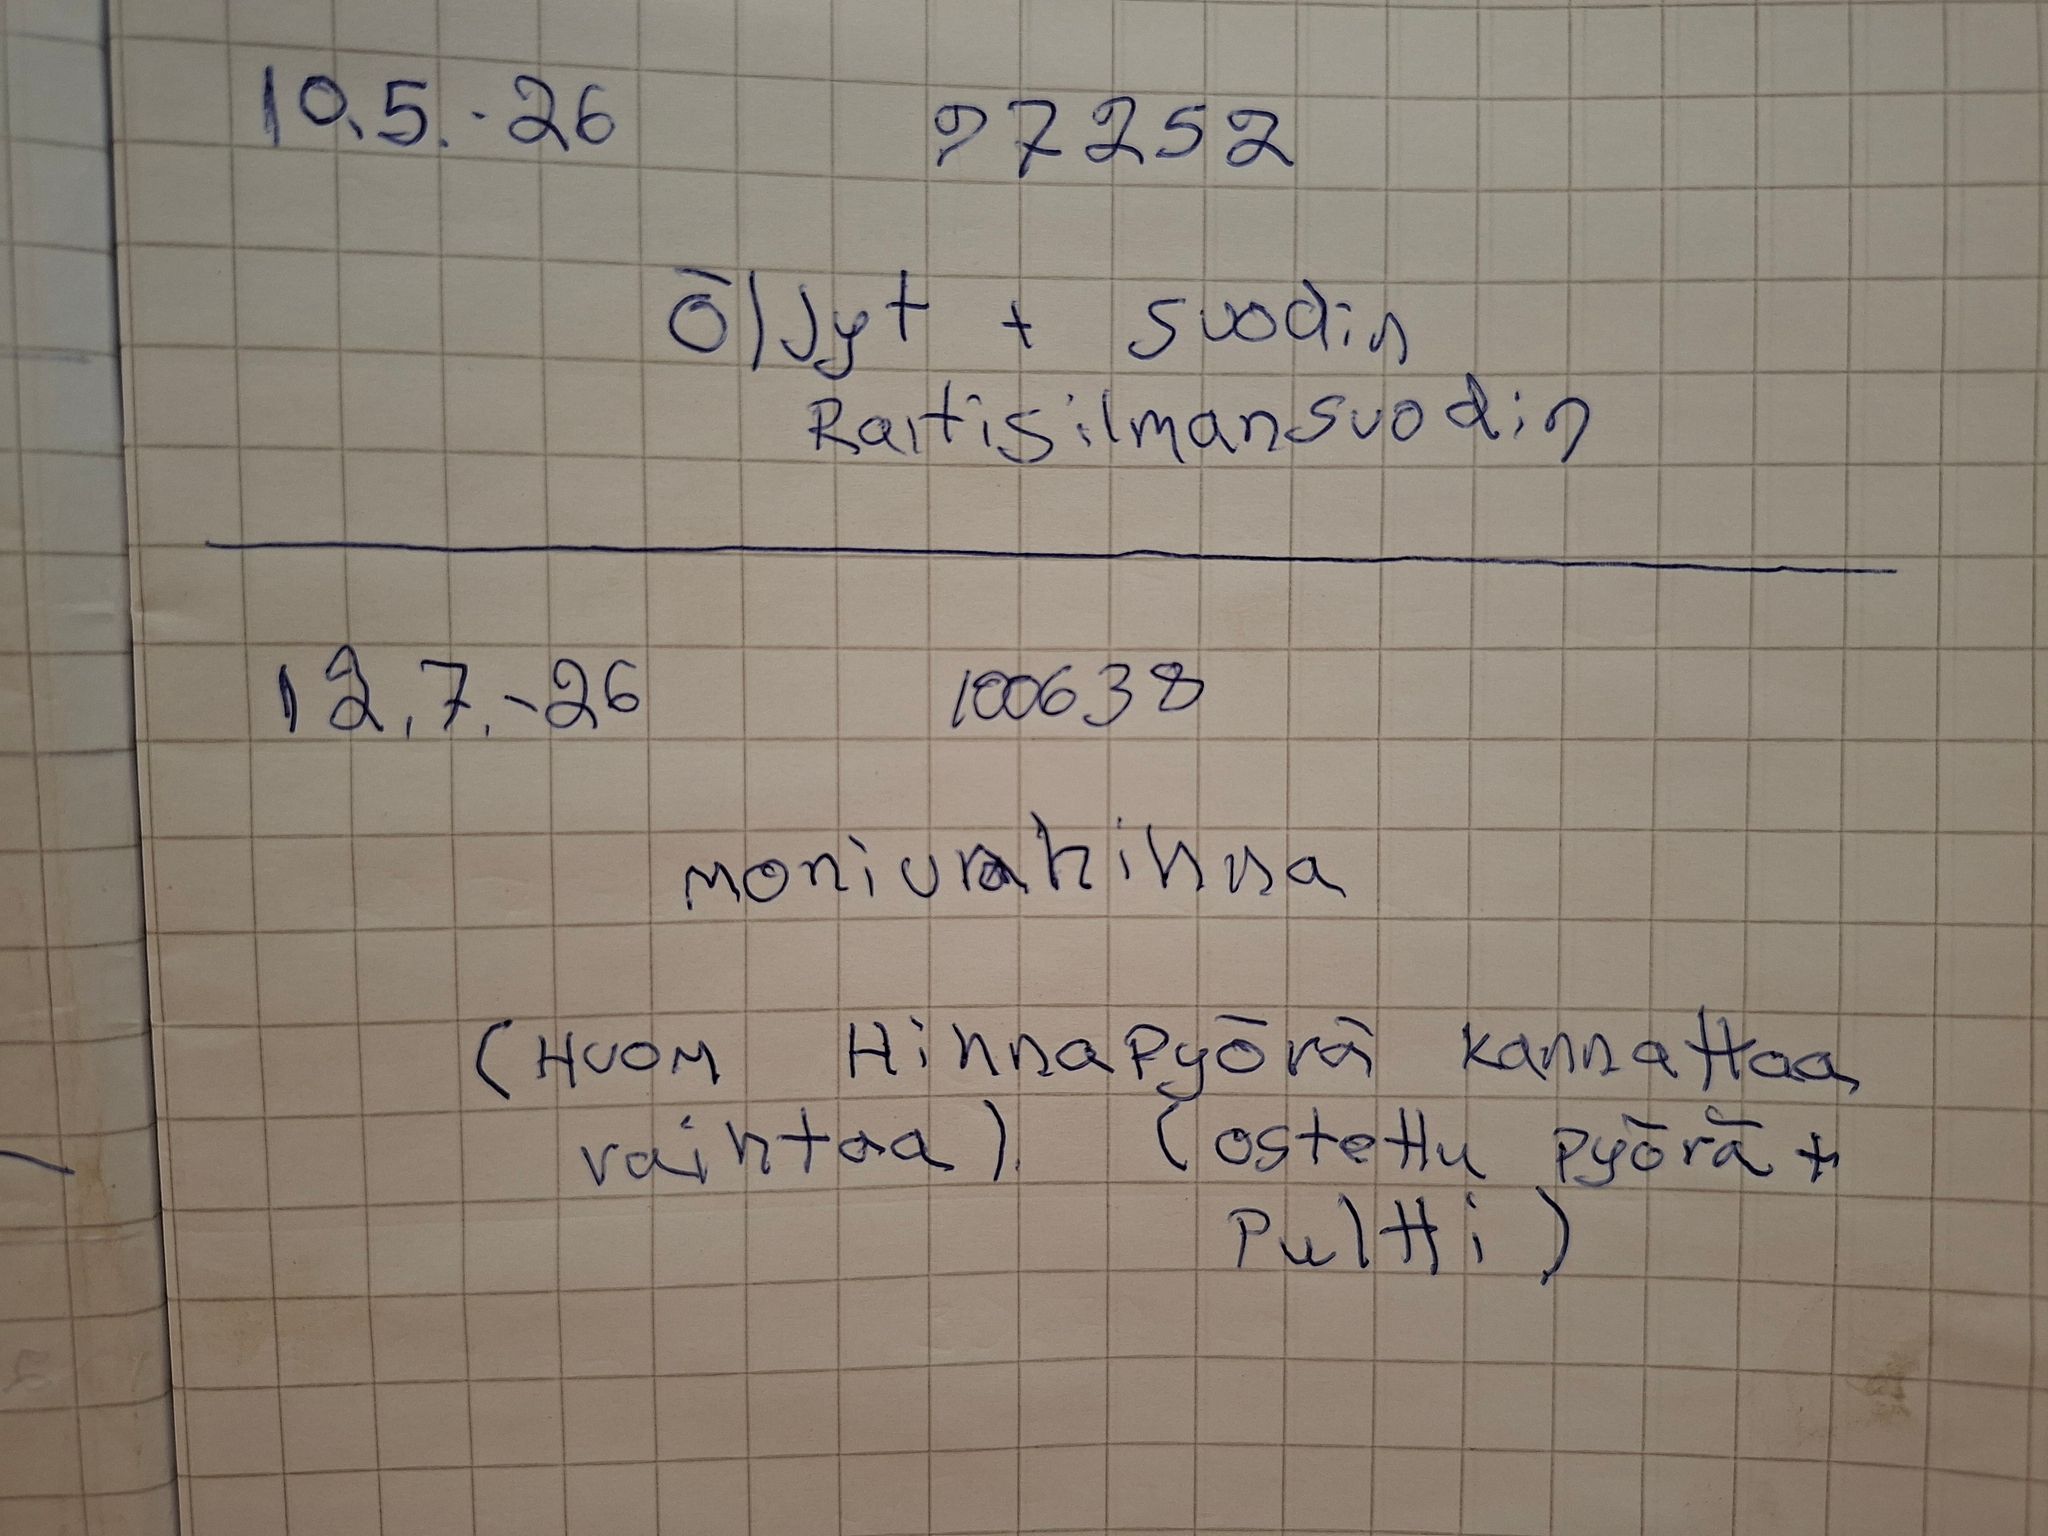 10.5.-26 97252
Öljyt + suodin
Raitisilmansuodin
12.7.-26 100638
moniurahihna
(HUOM Hihnapyörä kannattaa
vaihtaa). (ostettu pyörä +
Pultti)